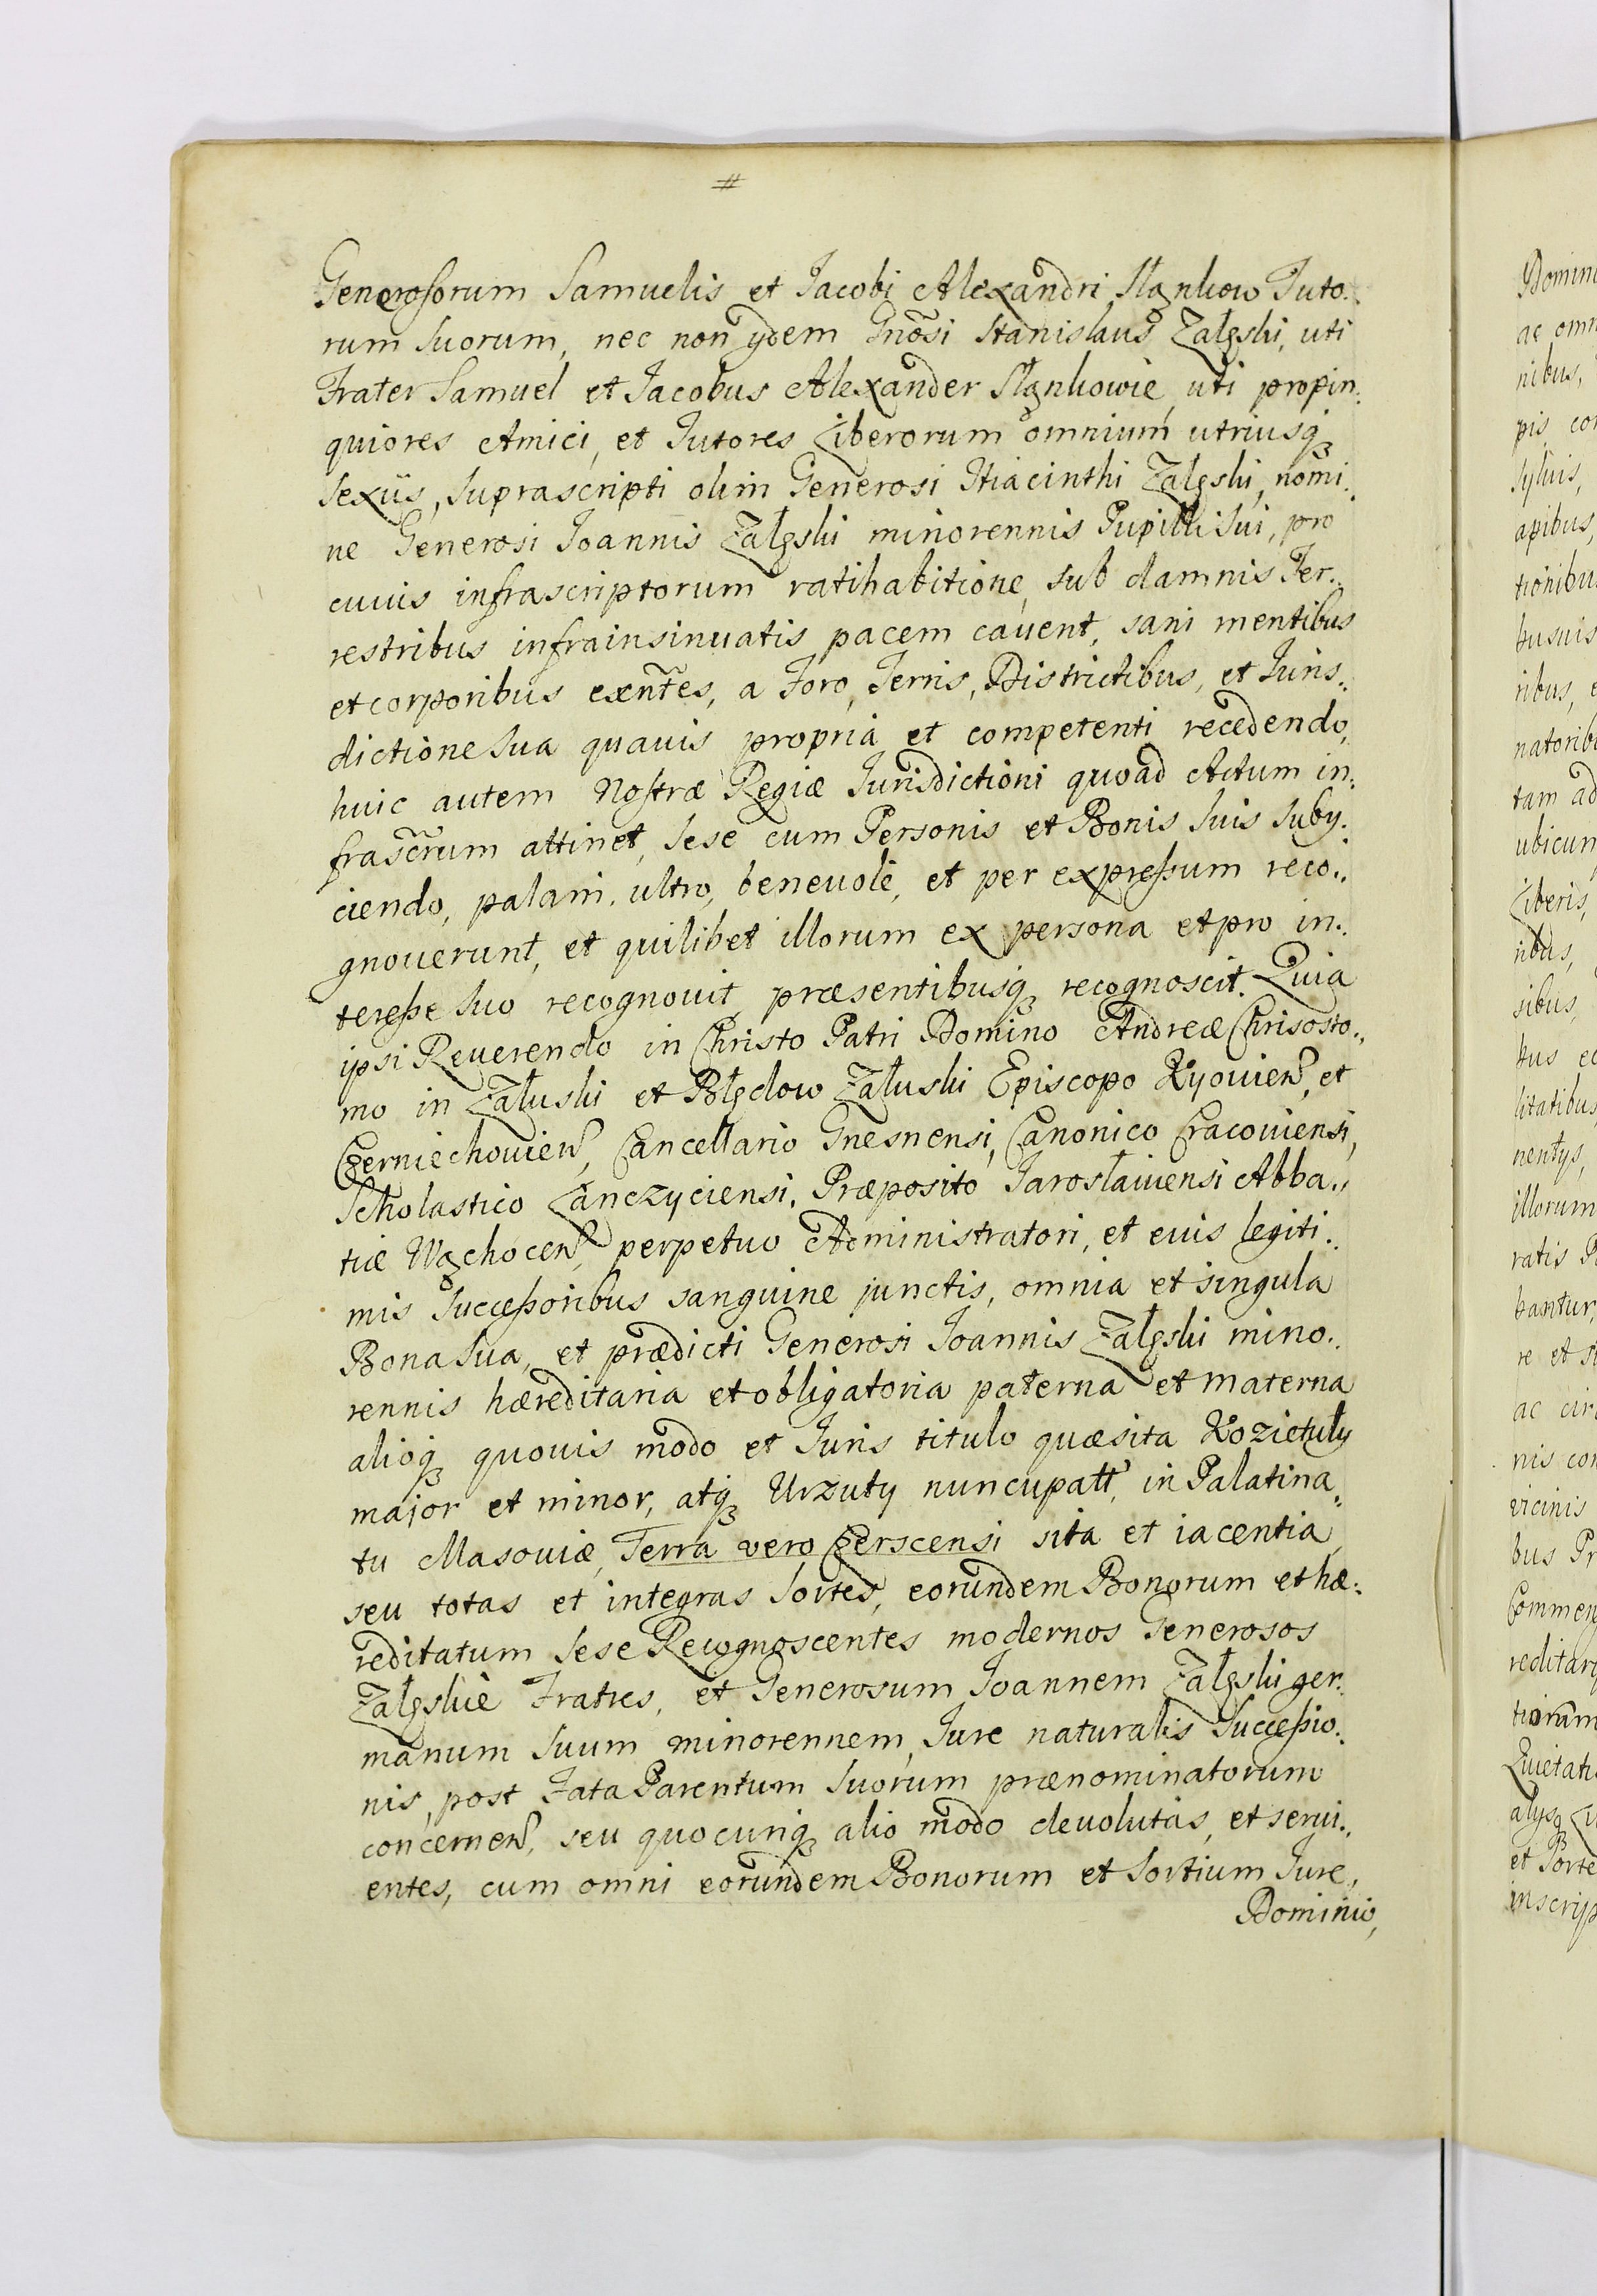 #
Generosorum Samuelis et Jacobi Alexandri Slęnkow Tuto..
rum Suorum, nec non ydem Gnõsi Stanislaus Załęski, uti
Frater Samuel et Jacobus Alexander Slęnkowie, uti propin:
quiores Amici, et Tutores Liberorum omnium utriusq
sexus, Suprascripti olim Generosi Hiacinthi Załęski, nomi:
ne Generosi Joannis Załęski minorennis Pupilli Sui, pro
cuuis infrascriptorum ratihabitione, sub damnis Ter..
restribus infrainsinuatis pacem cauent, sani mentibus
et corporibus exñtes, a Foro, Terris, Districtibus, et Juris..
dictione Sua quauis propria et competenti recedendo,
huic autem Nostræ Regiæ Jurisdictioni quoad Actum in:
frascr̃um attinet, Sese cum Personis et Bonis Suis Suby:
ciendo, palam, ultro, beneuole, et per expressum reco..
gnouerunt, et quilibet illorum ex persona et pro in..
teresse Suo recognouit, præsentibusq recognoscit. Quia
ipsi Reuerendo in Christo Patri Domino Andreæ Chrisosto..
mo in Załuski et Błędow Załuski Episcopo Kyouień, et
Czerniechouień, Cancellario Gnesnensi, Canonico Cracouiensi,
Scholastico Lanczyciensi, Præposito Jarosławiensi Abba..
tiæ Wąchoceń, perpetuo Administratori, et eius legiti..
mis Successoribus sanguine junctis, omnia et singula
Bona Sua, et prædicti Generosi Joannis Załęski mino..
rennis hæreditaria et obligatoria paterna et materna
alioq quouis modo et Juris titulo quæsita Kozietuły
major et minor, atq Urzuty nuncupatt, in Palatina..
tu Masouiæ, Terra vero Czerscensi sita et iacentia,
seu totas et integras Sortes, eorundem Bonorum et hæ:
reditatum Sese Recognoscentes modernos Generosos
Załęskie Fratres, et Generosum Joannem Załęski ger:
manum Suum minorennem, Jure naturalis Successio..
nis, post Fata Parentum Suorum prænominatorum
concerneń, seu quocunq alio modo deuolutas, et serui..
entes, cum omni eorundem Bonorum et Sortium Jure,
Dominio,